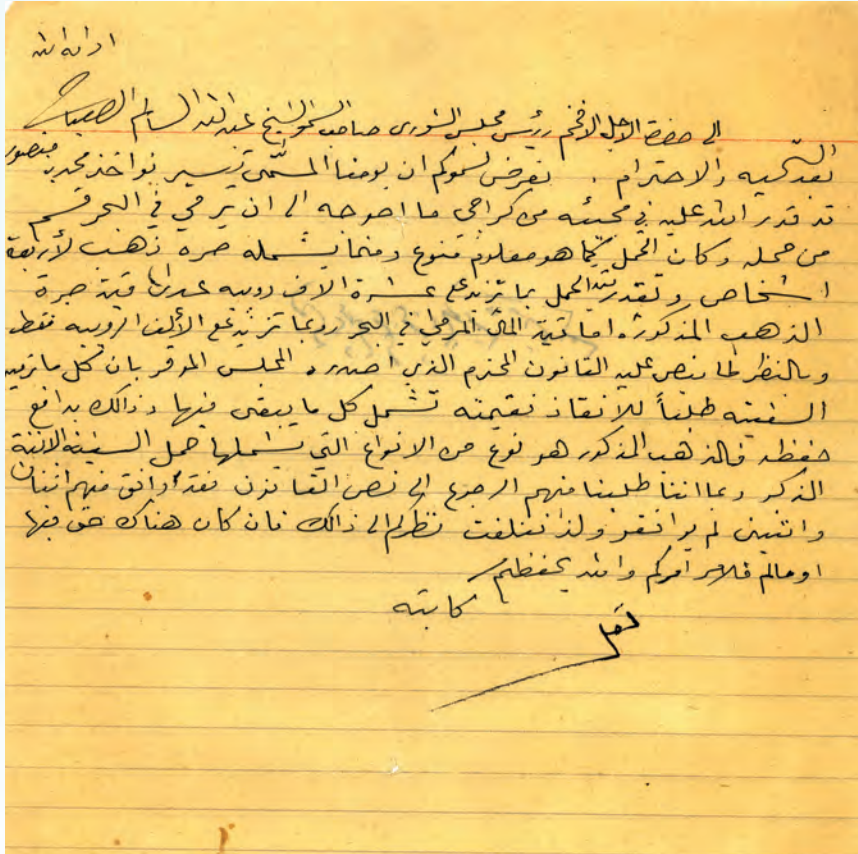 ادامه الله
الى حضرة الاجل الافخم رئيس مجلس الشورى صاحب السمو الشيخ عبد الله السالم الصباح
بعد التحيه والاحترام . نعرض لسموكم ان بومنا المسمى تيسير نواخذ محمد منصور
قد قدر الله عليه في مجيئه من كراجي ما احوجه الى ان يرمي في البحر قسم
من حمله وكان الحمل كما هو معلوم منوع ومنما يشمله صره ذهب لأربعة
اشخاص وتقدر الحمل بما تزيد على عشرة الاف روبيه عدا قيمة صرة
الذهب المذكوره اما قيمة المال المرمي في البحر ربما تزيد على الألف الروبيه فقط
وبالنظر لما ينص عليه القانون المحترم الذي اصدره المجلس الموقر بان كل ما ترميه
السفينه طلباً للأنقاذ فقيمته تشمل كل ما يبقى فيها وذالك بدافع
حفظه فالذهب المذكور هو نوع من الانواع التي يشملها حمل السفينه الانفة
الذكر وبما اننا طلبنا منهم الرجوع الى نص القانون فقد اوافق منهم اثنان
واثنين لم يوافقو ولذا نلفت نظركم الى ذالك فان كان هناك حق فيها
او مالم فلامر امركم والله يحفظكم
كاتبه